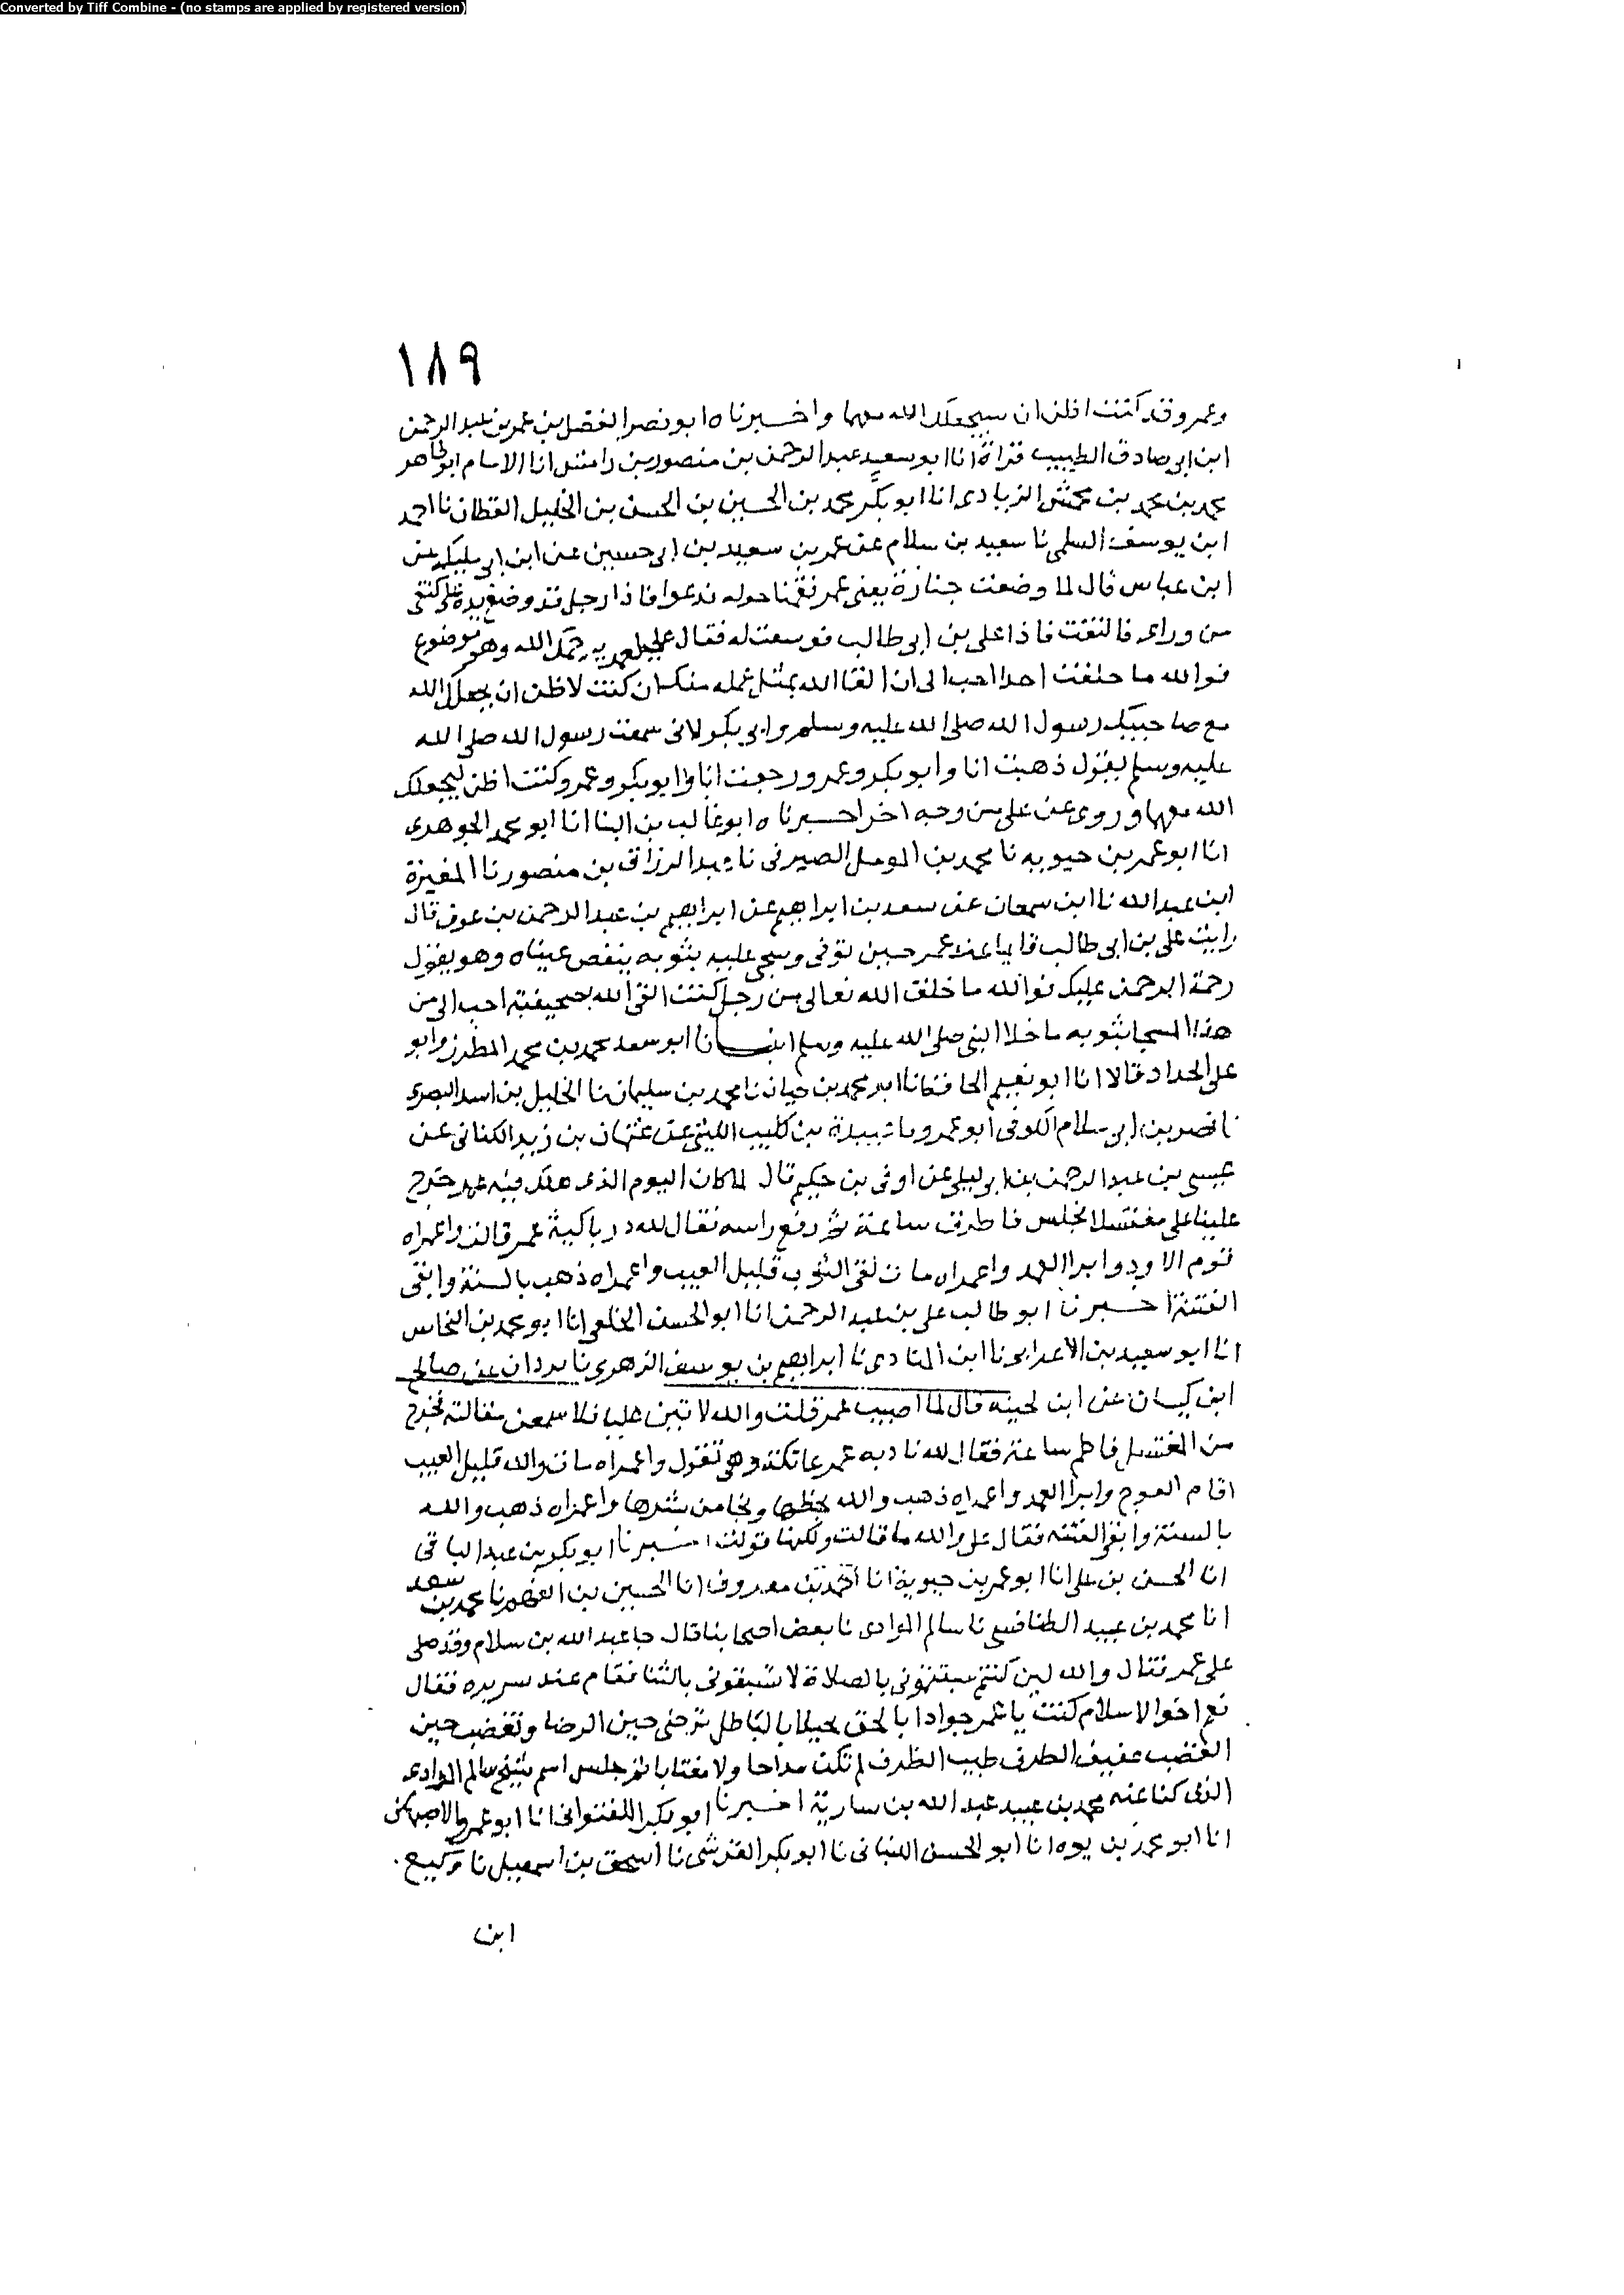 Converted by Tiff Combine - (no stamps are applied by registered version)
١٨٩
وعمر وقد كنت اظن ان سيجعلك الله معهما واخبرناه ابو نصر الفضل بن عمر بن عبد الرحمن
ابن ابي صادق الطبيب قراة انا ابو سعيد عبد الرحمن بن منصور بن رامش انا الامام ابو طاهر
محمد بن محمد بن محمش الزيادى انا ابو بكر محمد بن الحسين بن الحسن بن الخليل القطان نا احمد
ابن يوسف السلمى نا سعيد بن سلام عن عمر بن سعيد بن ابي حسين عن ابن ابي مليكة عن
ابن عباس قال لما وضعت جنازة يعنى عمر فقمنا حوله ندعوا فاذا رجل قد وضع يده على كتفى
من وراى فالتفت فاذا على بن ابى طالب فوسعت له فقال على لعمر يرحمك الله وهو موضوع
فوالله ما خلفت احدا احب الى ان القا الله بمثل عمله منك ان كنت لاظن ان يجعلك الله
مع صاحبيك رسول الله صلى الله عليه وسلم وابي بكر لانى سمعت رسول الله صلى الله
عليه وسلم يقول ذهبت انا وابو بكر وعمر ورجعت انا وابو بكر وعمر وكنت اظن ليجعلك
الله معهما وروى عن على من وجه اخر اخبرناه ابو غالب بن البنا انا ابو محمد الجوهرى
انا ابو عمر بن حيويه نا محمد بن الصيرفى نا عبد الرزاق بن منصور نا المغيرة
ابن عبد الله نا ابن سمعان عن سعد بن ابراهيم عن ابراهيم بن عبد الرحمن بن عوف قال
رايت على بن ابى طالب قايما عند عمر حين توفى وسجى عليه بثوبه عيناه وهو يقول
رحمة الرحمن عليك فوالله ما خلق الله تعالى من رجل كنت القى الله بصحيفته احب الى من
هذا المسجا بثوبه ما خلا النبى صلى الله عليه وسلم انبانا ابو سعد محمد بن محمد المطرز وابو
على الحداد قالا انا ابو نعيم الحافظ نا محمد بن حيان نا محمد بن سليمان نا الخليل بن اسد البصرى
نا نصر بن ابى سلام الكوفى ابو عمرو نا بن كليب الليثى عن عثمان بن زيد الكنانى عن
عيسى بن عبد الرحمن بن ابى ليلى عن اوفى بن حكيم قال لما كان اليوم الذى هلك فيه عمر خرج
علينا على مغتسلا فجلس فاطرق ساعة ثم رفع راسه فقال لله در باكية عمر قالت واعمراه
قوم الاود وابرا العمد واعمراه مات نقى الثوب قليل العيب واعمراه ذهب بالسنة وابقى
الفتنة اخبرنا ابو طالب على بن عبد الرحمن انا ابو الحسن الخلعى انا ابو محمد بن النحاس
انا ابو سعيد بن الاعرابى نا ابن المنادى نا ابراهيم بن يوسف الزهرى نا بردان عن صالح
ابن كيسان عن ابن قال لما اصيب عمر قلت والله لاتين عليا فلاسمعن مقالته فخرج
من المغتسل فاطم ساعة فقال لله نادبه عمر عاتكة وهى تقول واعمراه مات والله قليل العيب
اقام العوج وابرا العمد واعمراه ذهب والله بحظها ونجا من شرها واعمراه ذهب والله
بالسنة وابقى الفتنه فقال على والله ما قالت ولكنها قولت اخبرنا ابو بكر بن عبد الباقى
انا الحسن بن على انا ابو عمر بن حيوية انا احمد بن معروف انا الحسين بن الفهم نا محمد بن سعد
انا محمد بن عبيد الطنافسى نا سالم المرادى نا بعض اصحابنا قال جا عبد الله بن سلام وقد صلى
على عمر فقال والله لين كنتم سبقتمونى بالصلاة لا تسبقونى بالثنا فقام عند سريره فقال
نعم اخو الاسلام كنت يا عمر جوادا بالحق بخيلا بالباطل ترضى حين الرضا وتغضب حين
الغضب عفيف الطرف طيب الظرف لم تكن مداحا ولا مغتابا ثم جلس اسم سالم المرادى
الذى كنا عنه محمد بن عبيد عبد الله بن سارية اخبرنا ابو بكر اللفتوانى انا ابو عمرو الاصبهانى
انا ابو محمد بن يوه انا ابو الحسن اللنبانى نا ابو بكر القرشى نا اسحق بن اسمعيل نا وكيع
ابن